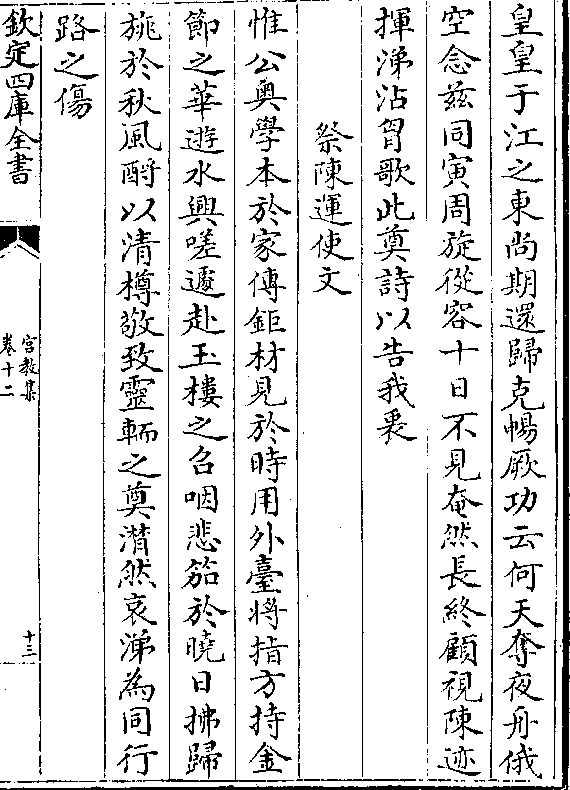 皇皇于江之東尚期還歸克暢厥功云何天奪夜舟俄
空念兹同寅周旋從容十日不見奄然長終顧視陳迹
揮涕沾胷歌此奠詩以告我衷
祭陳運使文
惟公奥學本於家傳鉅材見於時用外臺將指方持金
節之華逰水興嗟遽赴玉樓之召咽悲笳於曉日拂歸
旐於秋風酹以清樽敬致靈輀之奠潸然哀涕為同行
路之傷
欽定四庫全書
宫教集
卷十二
十三